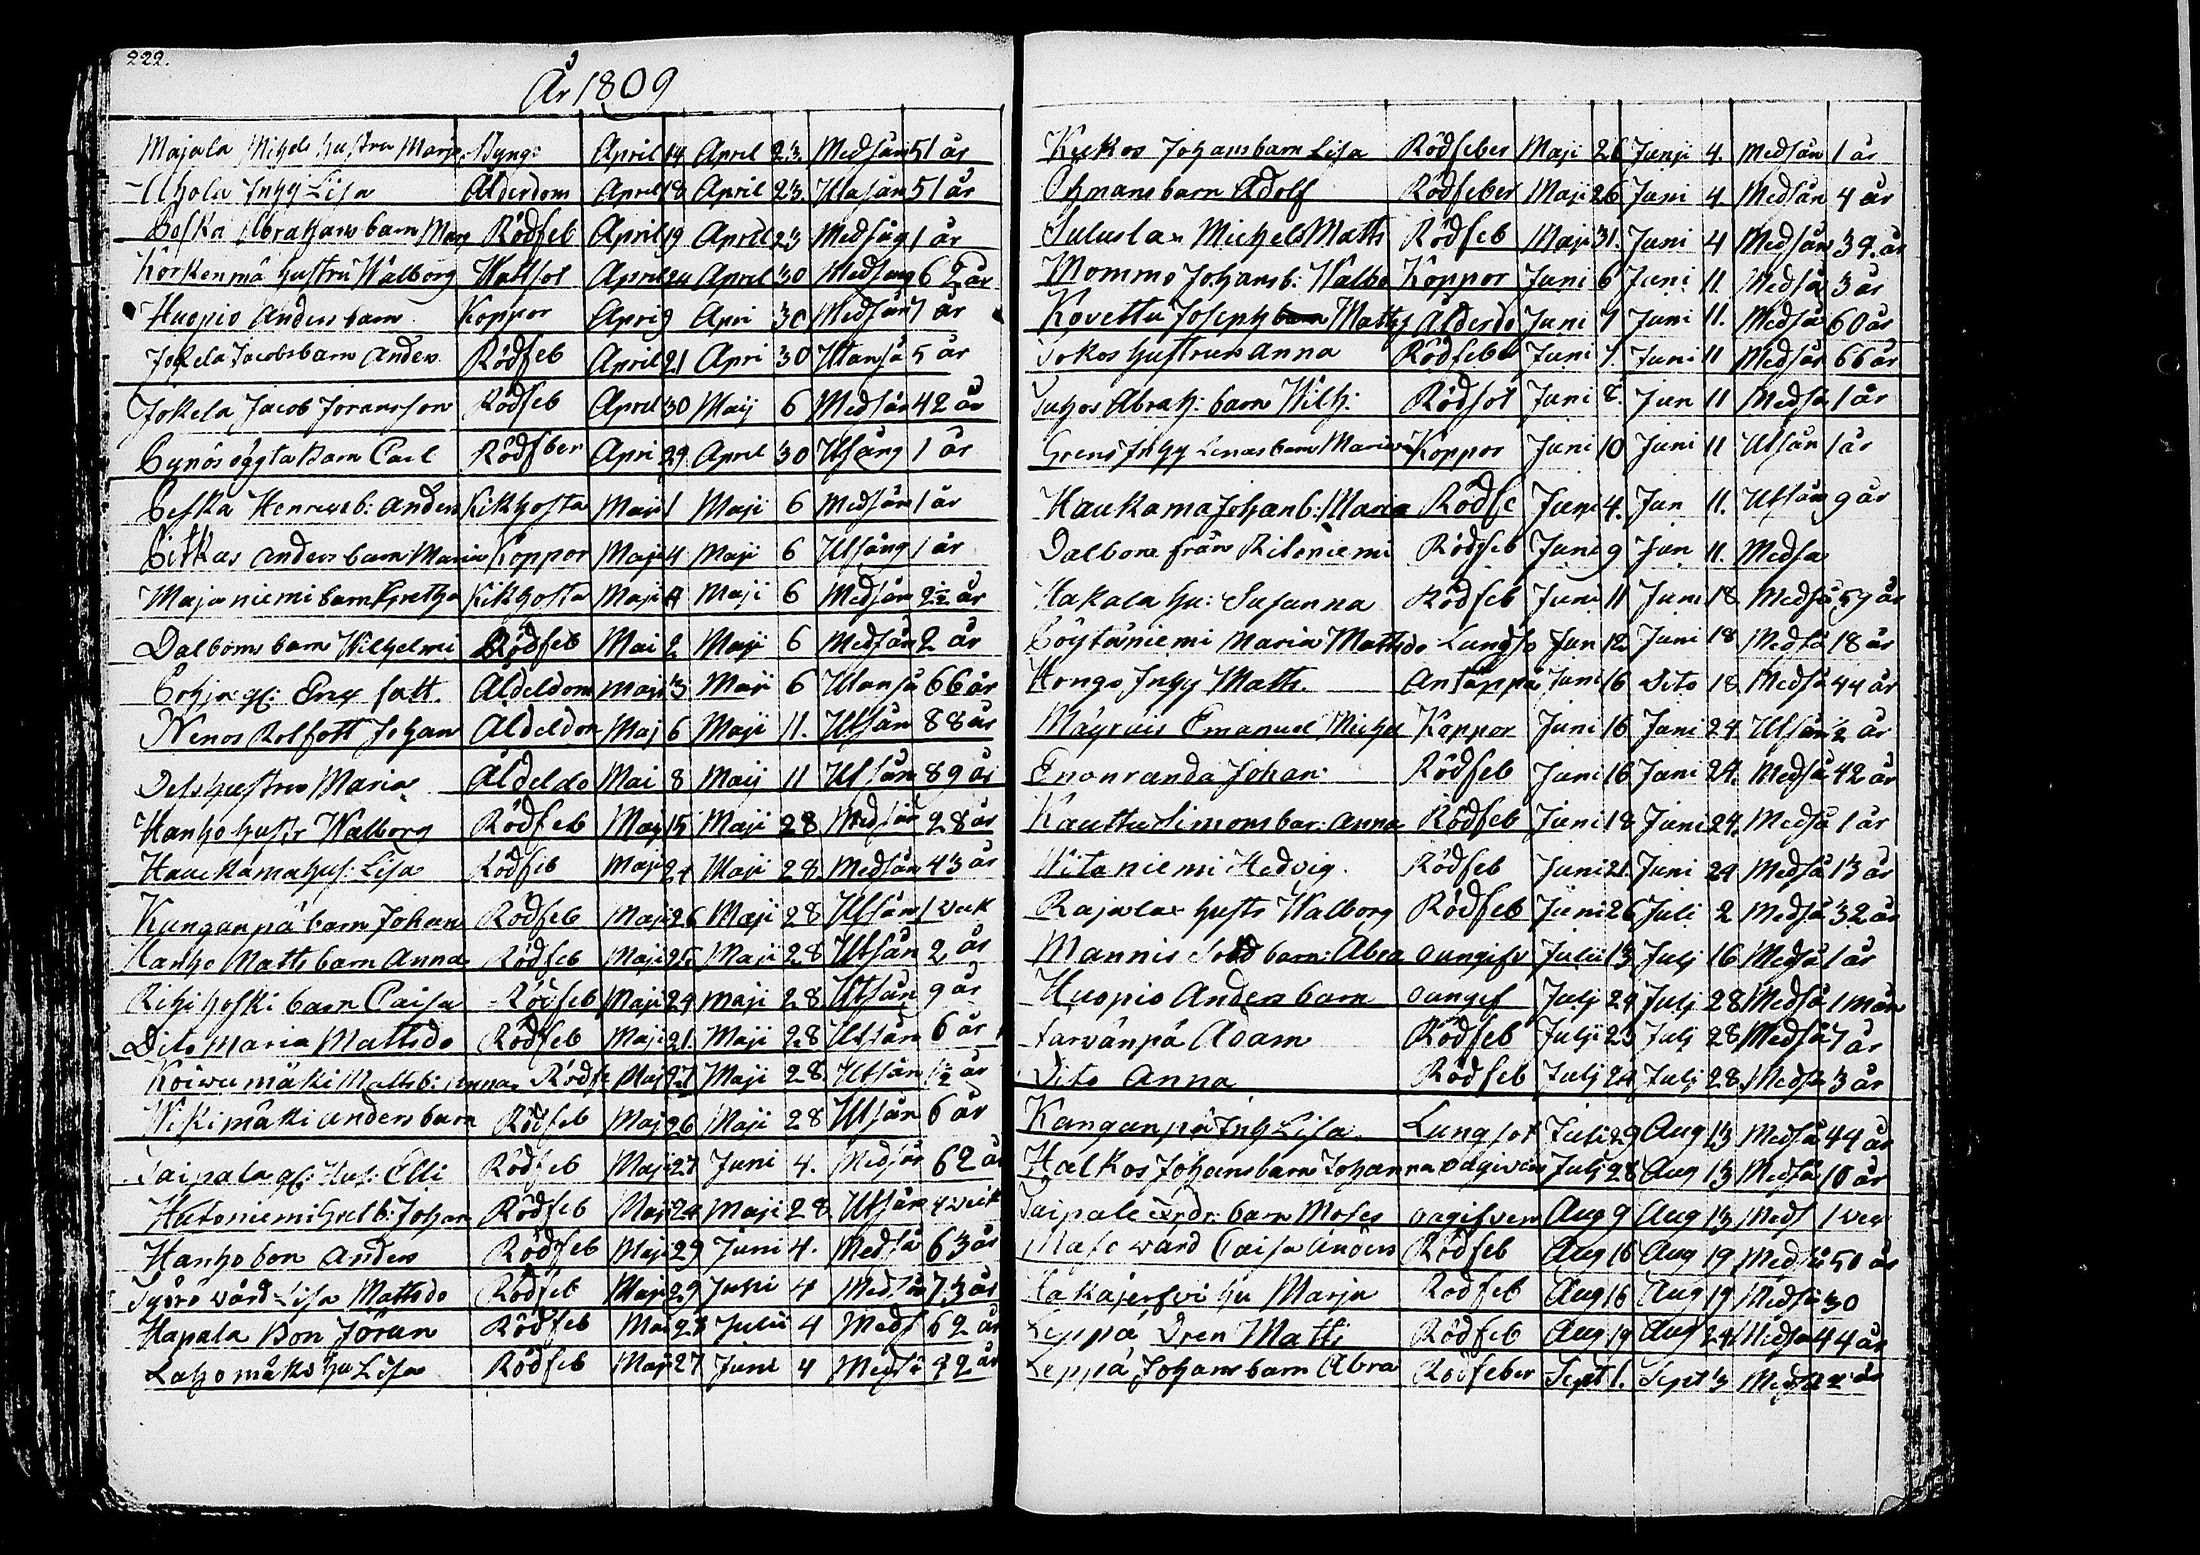 222.
År 1809
Majala Michels hustru Marja Styng: April 14 April 23 Medsån 51 år
Ahola Inhy Lisa Ålderdom April 18 April 23. Utasån 51 år
Peska Abrahams barn Mary Rödfeb April 19 April 23 Medsång 1 år
Korkenmä hustru Walborg Wattsot April 24 April 30 Medsång 62 år
Huopio Anders barn Koppor Apri 9 Apri 30 Medsån 7 år
Jokela Jacobs barn Anders Rödfeb April 21 Apri 30 Utanså 5 år
Jokela Jacob Joransson Rödfeb April 30 Maij 6 Medsån 42 år
barn Carl Rödfber Apri 29 April 30 Utsång 1 år
Peska Henrics b: Anders Kikhosta Maji 1 Maji 6 Medsån 1 år
Pitkas Anders barn Maria Koppor Maji 4 Maji 6 Utsång 1 år
Majaniemi barn Gretha Kikhosta Maji 4 Maji 6 Medsån 2½ år
Dalboms barn Wilhelmi Rödfeb Mai 2 Maji 6 Medsån 2 år
gl: Eric fatt. Aldeldom Maji 3 Maji 6 Utanså 66 år
Nenos Rolfatt Johan Aldeldon Maj 6 Maji 11. Utsån 88 år
Dess hustru Maria Åldeldo Mai 8 Maij 11 Utsån 89 år
Hanho hustr Walborg Rödfeb Maj 15 Maji 28 Medsån 28 år
Hauckama hus: Lisa Rödfeb Maji 24 Maji 28 Medsån 43 år
Kanganpä barn Johan Rödfeb Maji 26 Maji 28 Utsån 1 wek
Hanho Matts barn Anna Rödfeb Maji 25 Maji 28 Utsån 2 år
Rihihoski barn Caisa Rödfeb Maji 24 Maji 28 Utsån 9 år
Dito Maria Mattsdo Rödfeb Maji 21 Maji 28 Utsån 6 år
Koiwumäki Matts b: Anna Rödfe Maj 27 Maji 28. Utsån 1½ år
Wikimäki Anders barn Rödfeb Maj 26 Maji 28 Utsån 6 år
Taipala gl: Hus: Elli Rödfeb Maji 27 Juni 4. Medsån 62 år
Hutoniemi Gret b: Johan Rödfeb Maji 24 Maji 28 Utsån 4 wek
Hanho bon Anders Rödfeb Maji 29 Juni 4. Medså 63 år
Pyörö wård Lisa Mattsdo Rödfeb Maji 29 Juni 4 Medsån 73 år
Hapala Bon Jöran Rödfeb Mai 27 Julii 4 Meds 62 år
Lahomäki hu Lisa Rödfeb Maji 27 Juni 4 Medså 42 år
Kukos Johans barn Lisa Rödfeber Maji 26 Junji 4. Medsån 1 år
Öhmans barn Adolf Rödfeber Maji 26 Juni 4. Medsån 4 år
Michels Matts Rödfeb Maji 31. Juni 4 Medsån 39. år
Mommo Johans b: Walbo Koppor Juni 6 Juni 11. Medså 3 år
Kovettu Joseph Matts Ålderdo Juni 7 Juni 11. Medså 60 år
Jokos hustrun Anna Rödfeber Juni 7. Juni 11 Medsån 66 år
Abrah: barn Wilh: Rödsot Juni 8. Jun 11 Medså 1 år
Grens Inhy Lenas barn Maria Koppor Juni 10 Juni 11 Utsån 1 år
Haukama Johan b: Maria Rödfe Juni 4. Jun 11. Utsån 9 år
Dalbom från Ritoniemi Rödfeb Juni 9 Jun 11. Medså
Hakala hu: Susanna Rödfeb Juni 11 Juni 18 Medså 59 år
Pöytäniemi Maria Mattsdo Lungso Jun 12 Juni 18 Medså 18 år
Hongo Inhy Matts. Antäppa Juni 16 Dito 18. Medså 44 år
Mäyruis Emanuel Michel Koppor Juni 16 Juni 24. Utsån ½ år
Enonranda Johan: Rödfeb Juni 16 Juni 24. Medså 42 år
Kauttu Simons bar: Anna Rödfeb Juni 18 Juni 24. Medså 1 år
Witaniemi Hedvig. Rödfeb Juni 21. Juni 24 Medså 13 år
Rajala hustr Walborg Rödfeb Juni 26 Juli 2 Medså 32 år
Mannis Sold barn: Abra oangifv Julii 13 Julj 16 Medså 1 år
Huopio Anders barn oangif Julj 24 Julj 28 Medså 1 mån
Tarvanpä Adam Rödfeb Julji 23 Julj 28 Medså 7 år
Dito Anna Rödfeb Julj 24 Julj 28. Medså 3 år
Kanganpä Inh Lisa Lungsot Juli 29 Aug 13 Medså 44 år
Halkos Johans barn Johanna oagiven Julj 28 Aug 13 Medså 10 år
Taipale Andr: barn Moses oagifven Aug 9 Aug 13 Meds 1 wek
wård Caisa Anders Rödfeb Aug 16 Aug 19 Medså 50 år
hu Marja Rödfeb Aug 16 Aug 19 Medså 30
Leppä Dren Matti Rödfeb Aug 19 Aug 24 Medså 44 år
Leppä Johans barn Abra Rödfeber Sept 1. Sept 3 Medså 2 år